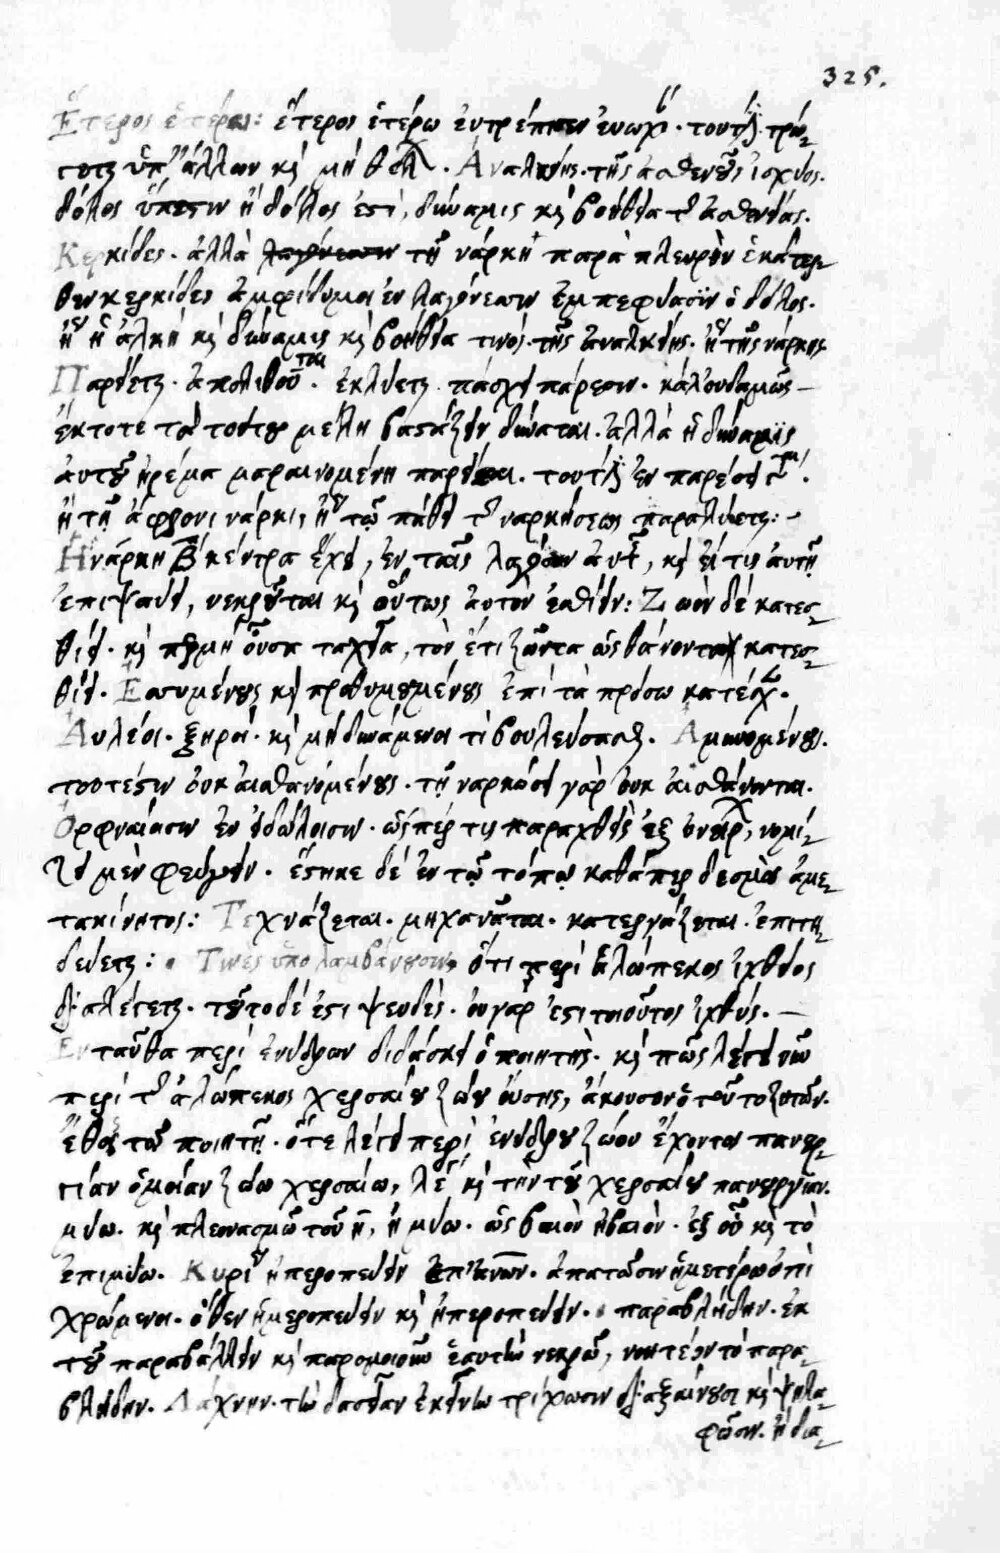 325.
Ἕτερος ἑτέρῳ: ἕτερος ἑτέρῳ ἐντρέπων εὐωχ. τουτέστι τρώ-
γεται ὑπ' ἄλλων καὶ μὴ θέλ. Ἀναλκίης. τῆς ἀσθενοῦς ἰσχύος.
δόλος ἢ δόλος ἐστί, δύναμις καὶ βοήθεια τοῦ ἀσθενείας.
Κερκίδες. ἀλλὰ τῇ νάρκῃ παρὰ πλευρὸν ἑκάτερ-
θεν κερκίδες ἀμφίδυμοι ἐν λαγόνεσσιν ἐμπεφύασιν ὁ δόλος.
ἢ ἡ ἀλκὴ καὶ δύναμις καὶ βοήθεια τινός. τῆς ἀναλκίης. ἢ τῆς νάρκης
Παρίεται. ἀπολιθοῦται. ἐκλύεται. πάσχει πάρεσιν. καὶ οὐδαμῶς
ἔκτοτε τὰ τούτου μέλη βαστάζειν δύναται. ἀλλὰ ἡ δύναμις
αὐτοῦ ἠρέμα μαραινομένη παρίεται. τουτέστιν ἐν παρέσει
ἢ τῇ ἄφρονι νάρκῃ, ἢ τῷ πάθει τοῦ ναρκήσεως παραλύεται:
Ἡ νάρκη β κέντρα ἔχει, ἐν ταῖς λαγόσιν αὐτῆς, καὶ εἴ τις αὐτῇ
ἐπιψαύει, νεκροῦται καὶ οὕτως αὐτὸν ἐσθίει: Ζωὸν δὲ κατεσ-
θίει. καὶ μὴ οὖσα ταχεῖα, τὸν ἔτι ζῶντα ὡς θανόντα κατεσ-
θίει. Ἐσσυμένους καὶ προθυμουμένους ἐπὶ τὰ πρόσω κατέσχ.
Αὐλέοι. ξηροί. καὶ μὴ δυνάμενοι τὶ βουλεύσασθαι.
τουτέστιν οὐκ αἰσθανόμενους. τῇ ναρκώσει γὰρ οὐκ αἰσθάνονται.
Ὀρφναίοισιν ἐν εἰδώλοισιν. ὥσπερ τις παραχθεὶς ἐξ ὀνείρ, νομί-
ζει μὲν φεύγειν. ἕστηκε δὲ ἐν τῷ τόπῳ καθάπερ δεσμῷ ἀμε-
τακίνητος: Τεχνάζεται. μηχανᾶται. κατεργάζεται. ἐπιτη-
δεύεται: Τινὲς ὑπολαμβάνουσιν, ὅτι περὶ ἀλώπεκος ἰχθύος
διαλέγεται. τοῦτο δέ ἐστι ψευδές. οὐ γάρ ἐστι τοιοῦτος ἰχθύς.
Ἐνταῦθα περὶ ἐνύδρων διδάσκει ὁ ποιητής. καὶ πῶς λέγει νῦν
περὶ τοῦ ἀλώπεκος χερσαίου ζώου οὔσης, ἄκουσον τοῦτο ζητῶν.
ἔθος τῷ ποιητῇ. ὅτε λέγει περὶ ἐνύδρου ζώου ἔχοντος πανουρ-
γίαν ὁμοίαν ζώῳ χερσαίῳ, λέγει καὶ τὴν τοῦ χερσαίου πανουργίαν.
μύω. καὶ πλεονασμῷ τοῦ η, ἠμύω. ὡς βαιὸν ἠβαιόν. ἐξ οὗ καὶ τὸ
ἐπιμύω. Κυρί ἠπεροπεύειν ἀπατῶσιν ἡμετέρῳ ὀπὶ
χρώμενοι. ὅθεν ἡμεροπεύειν καὶ ἠπεροπεύειν. παραβλήδην. ἐκ
τοῦ παραβάλλειν καὶ παρομοιοῦν ἑαυτὴν νεκρῷ, νοητέον τὸ παρα-
βλήδην. Λάχνην. τὴν δασεῖαν ἐκείνην τρίχωσιν διαξαίνουσι καὶ ψηλα-
φῶσιν. ἢ δια-